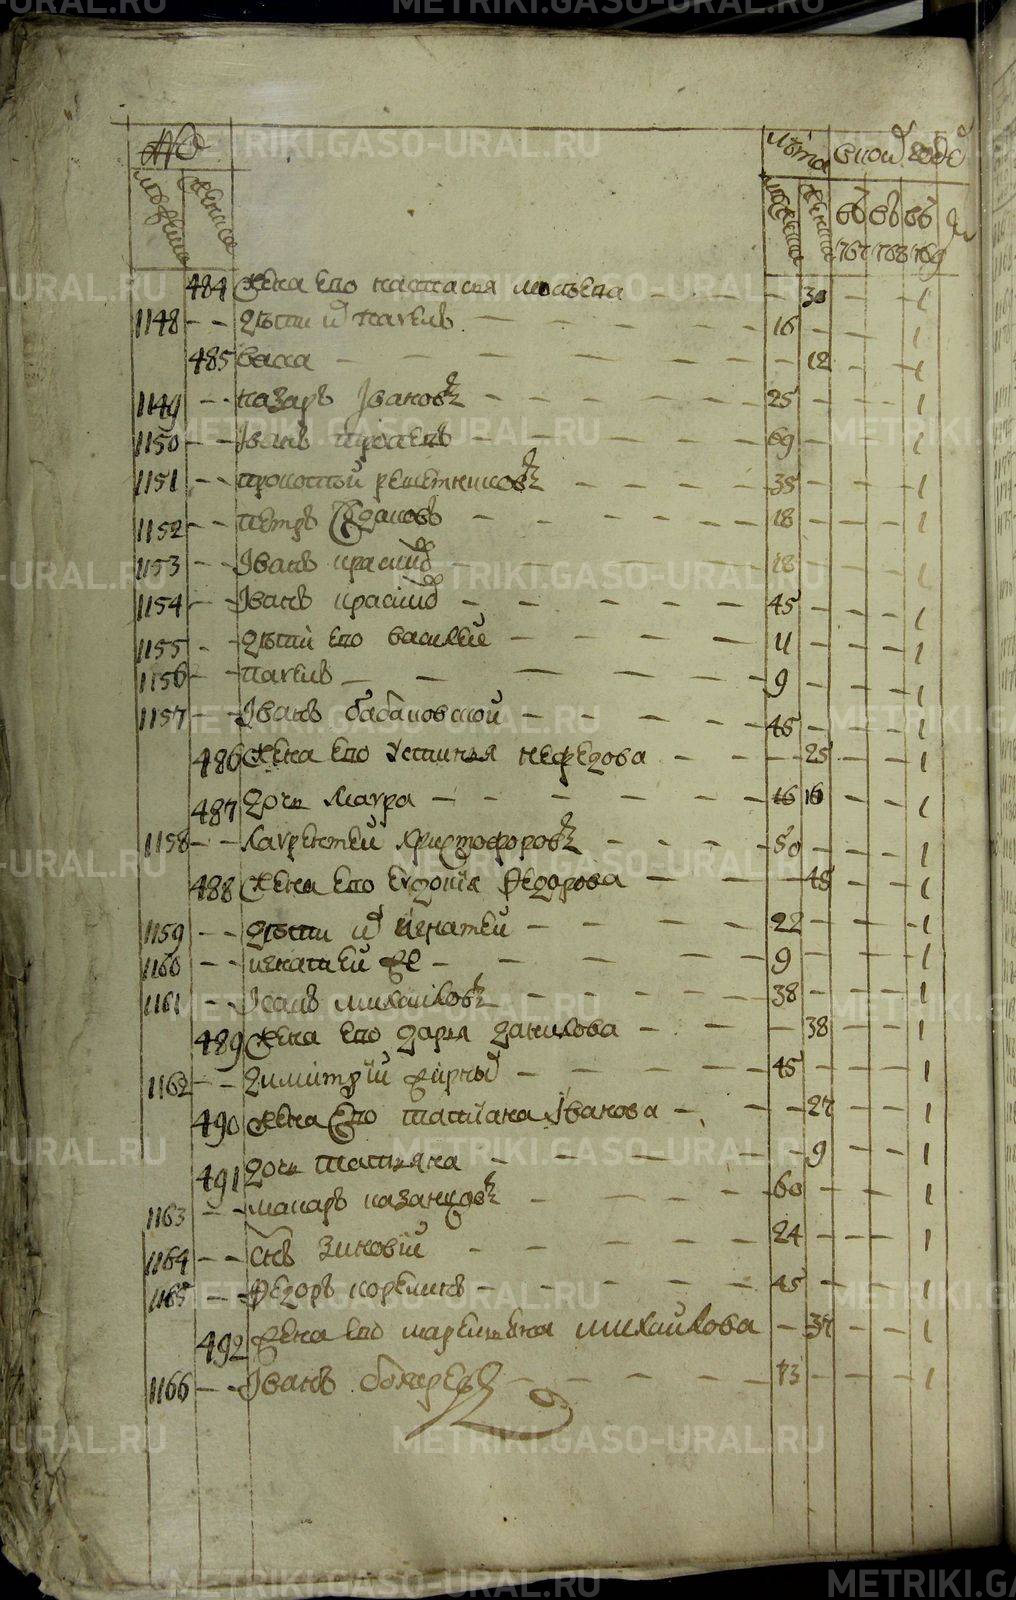 № лѣта
мужеска женска мужеска женска въ 767 въ 768 въ 769
484 жена его настасья 30 1
1148 дѣти их павелъ 16 1
485 васса 12 1
1149 назаръ Iвановъ 25 1
1150 Iванъ 69 1
1151 прокопъй решетниковъ 35 1
1152 петръ ждановъ 18 1
1153 Iванъ 18 1
1154 Iванъ 45 1
1155 дѣти его василей 11 1
1156 павелъ 9 1
1157 Iванъ 45 1
486 жена его устинья нефедова 25 1
487 дочь мавра 16 16 1
1158 лаврентей христофоровъ 50 1
488 жена его федорова 45 1
1159 дѣти их игнатей 22 1
1160 игнатей же 9 1
1161 михаиловъ 38 1
489 жена его дарья данилова 38 1
1162 димитрiй 45 1
490 жена его татiана Iванова 27 1
491 дочь татьяна 9 1
1163 макаръ казанцовъ 60 1
1164 снъ зиновiй 24 1
1165 федоръ корелинъ 45 1
492 жена его михайлова 37 1
1166 Iванъ 73 1
METRIKI.GASO-URAL.RU